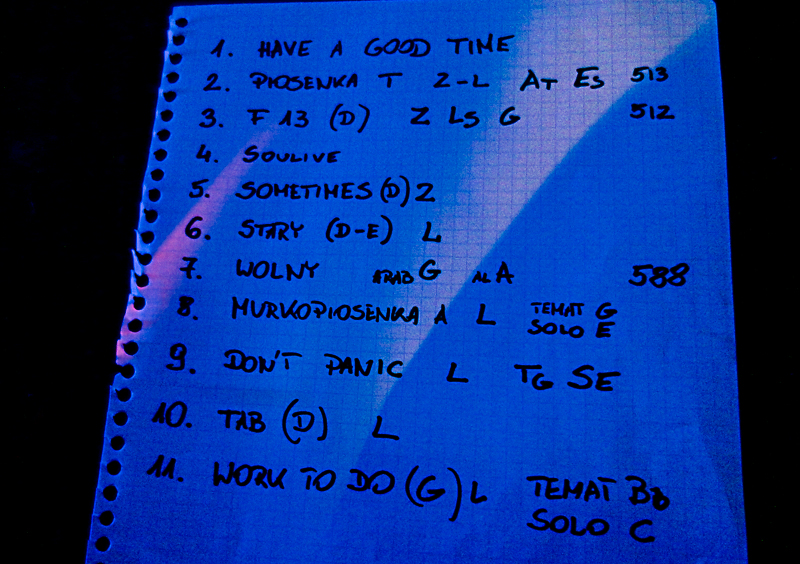 1. HAVE A GOOD TIME
2. PIOSENKA T Z-L AT ES 513
3. F 13 (D) Z LS G 512
4. SOULIVE
5. SOMETIMES (D) Z
6. STARY (D-E) L
7. WOLNY ARAB G AL A 588
8. MURKOPIOSENKA A L TEMAT G
SOLO E
9. DON'T PANIC L TG SE
10. TAB (D) L
11. WORK TO DO (G) L TEMAT Bb
SOLO C